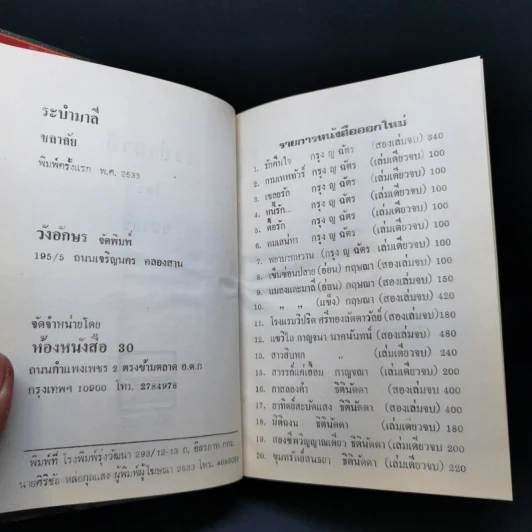 ระบำมาลี
ชลาลัย
พิมพ์ครั้งแรก พ.ศ. 2533
วังอักษร จัดพิมพ์
195/5 ถนนเจริญนคร คลองสาน
จัดจำหน่ายโดย
ห้องหนังสือ 30
ถนนกำแพงเพชร 2 ตรงข้ามตลาด อ.ต.ก
กรุงเทพฯ 10900 โทร. 2784978
พิมพ์ที่ โรงพิมพ์รุ่งวัฒนา 293/12-13 ถ. อิสรภาพ กทม.
นายศิริชัย หล่อกุลแสง ผู้พิมพ์ผู้โฆษณา 2533 โทร.
รายการหนังสือออกใหม่
1. รักคืนใจ กรุง ญ ฉัตร (สองเล่มจบ) 340
2. กามเทพทัวร์ กรุง ญ ฉัตร (เล่มเดียวจบ) 100
3. เชลยรัก กรุง ญ ฉัตร (เล่มเดียวจบ) 100
4. หนี้รัก.. กรุง ญ ฉัตร (เล่มเดียวจบ) 100
5. ดื้อรัก กรุง ญ ฉัตร (เล่มเดียวจบ) 100
6. คมเสน่หา กรุง ญ ฉัตร (เล่มเดียวจบ) 100
7. พยาบาทหวาน (กรุง ญ ฉัตร (เล่มเดียวจบ) 100
8. เข็มซ่อนปลาย (อ่อน) กฤษณา (สองเล่มจบ) 100
9. แมลงและมาลี (อ่อน) กฤษณา (เล่มเดียวจบ) 150
10. " " (แข็ง) กฤษณา (สองเล่มจบ) 420
11. โรงแรมวิปริต ศรีทองลัดดาวัลย์ (สองเล่มจบ)180
12. แซริโอ กาญจนา นาคนันทน์ (สองเล่มจบ) 480
13. สาวสิบหก " (เล่มเดียวจบ) 240
15. สวรรค์แค่เอื้อม กาญจนา (เล่มเดียวจบ) 240
16. กาสลองคำ ธิตินัดดา (สองเล่มจบ) 400
17. อาทิตย์ละบัดแสง ธิตินัดดา (สองเล่มจบ) 400
18. มิติฉงน ธิตินัดดา (เล่มเดียวจบ) 180
19. สองชีพวิญญาณเดียว ธิตินัดดา (เล่มเดียวจบ) 200
20. ขุมทรัพย์สนธยา ธิตินัดดา (เล่มเดียวจบ) 220